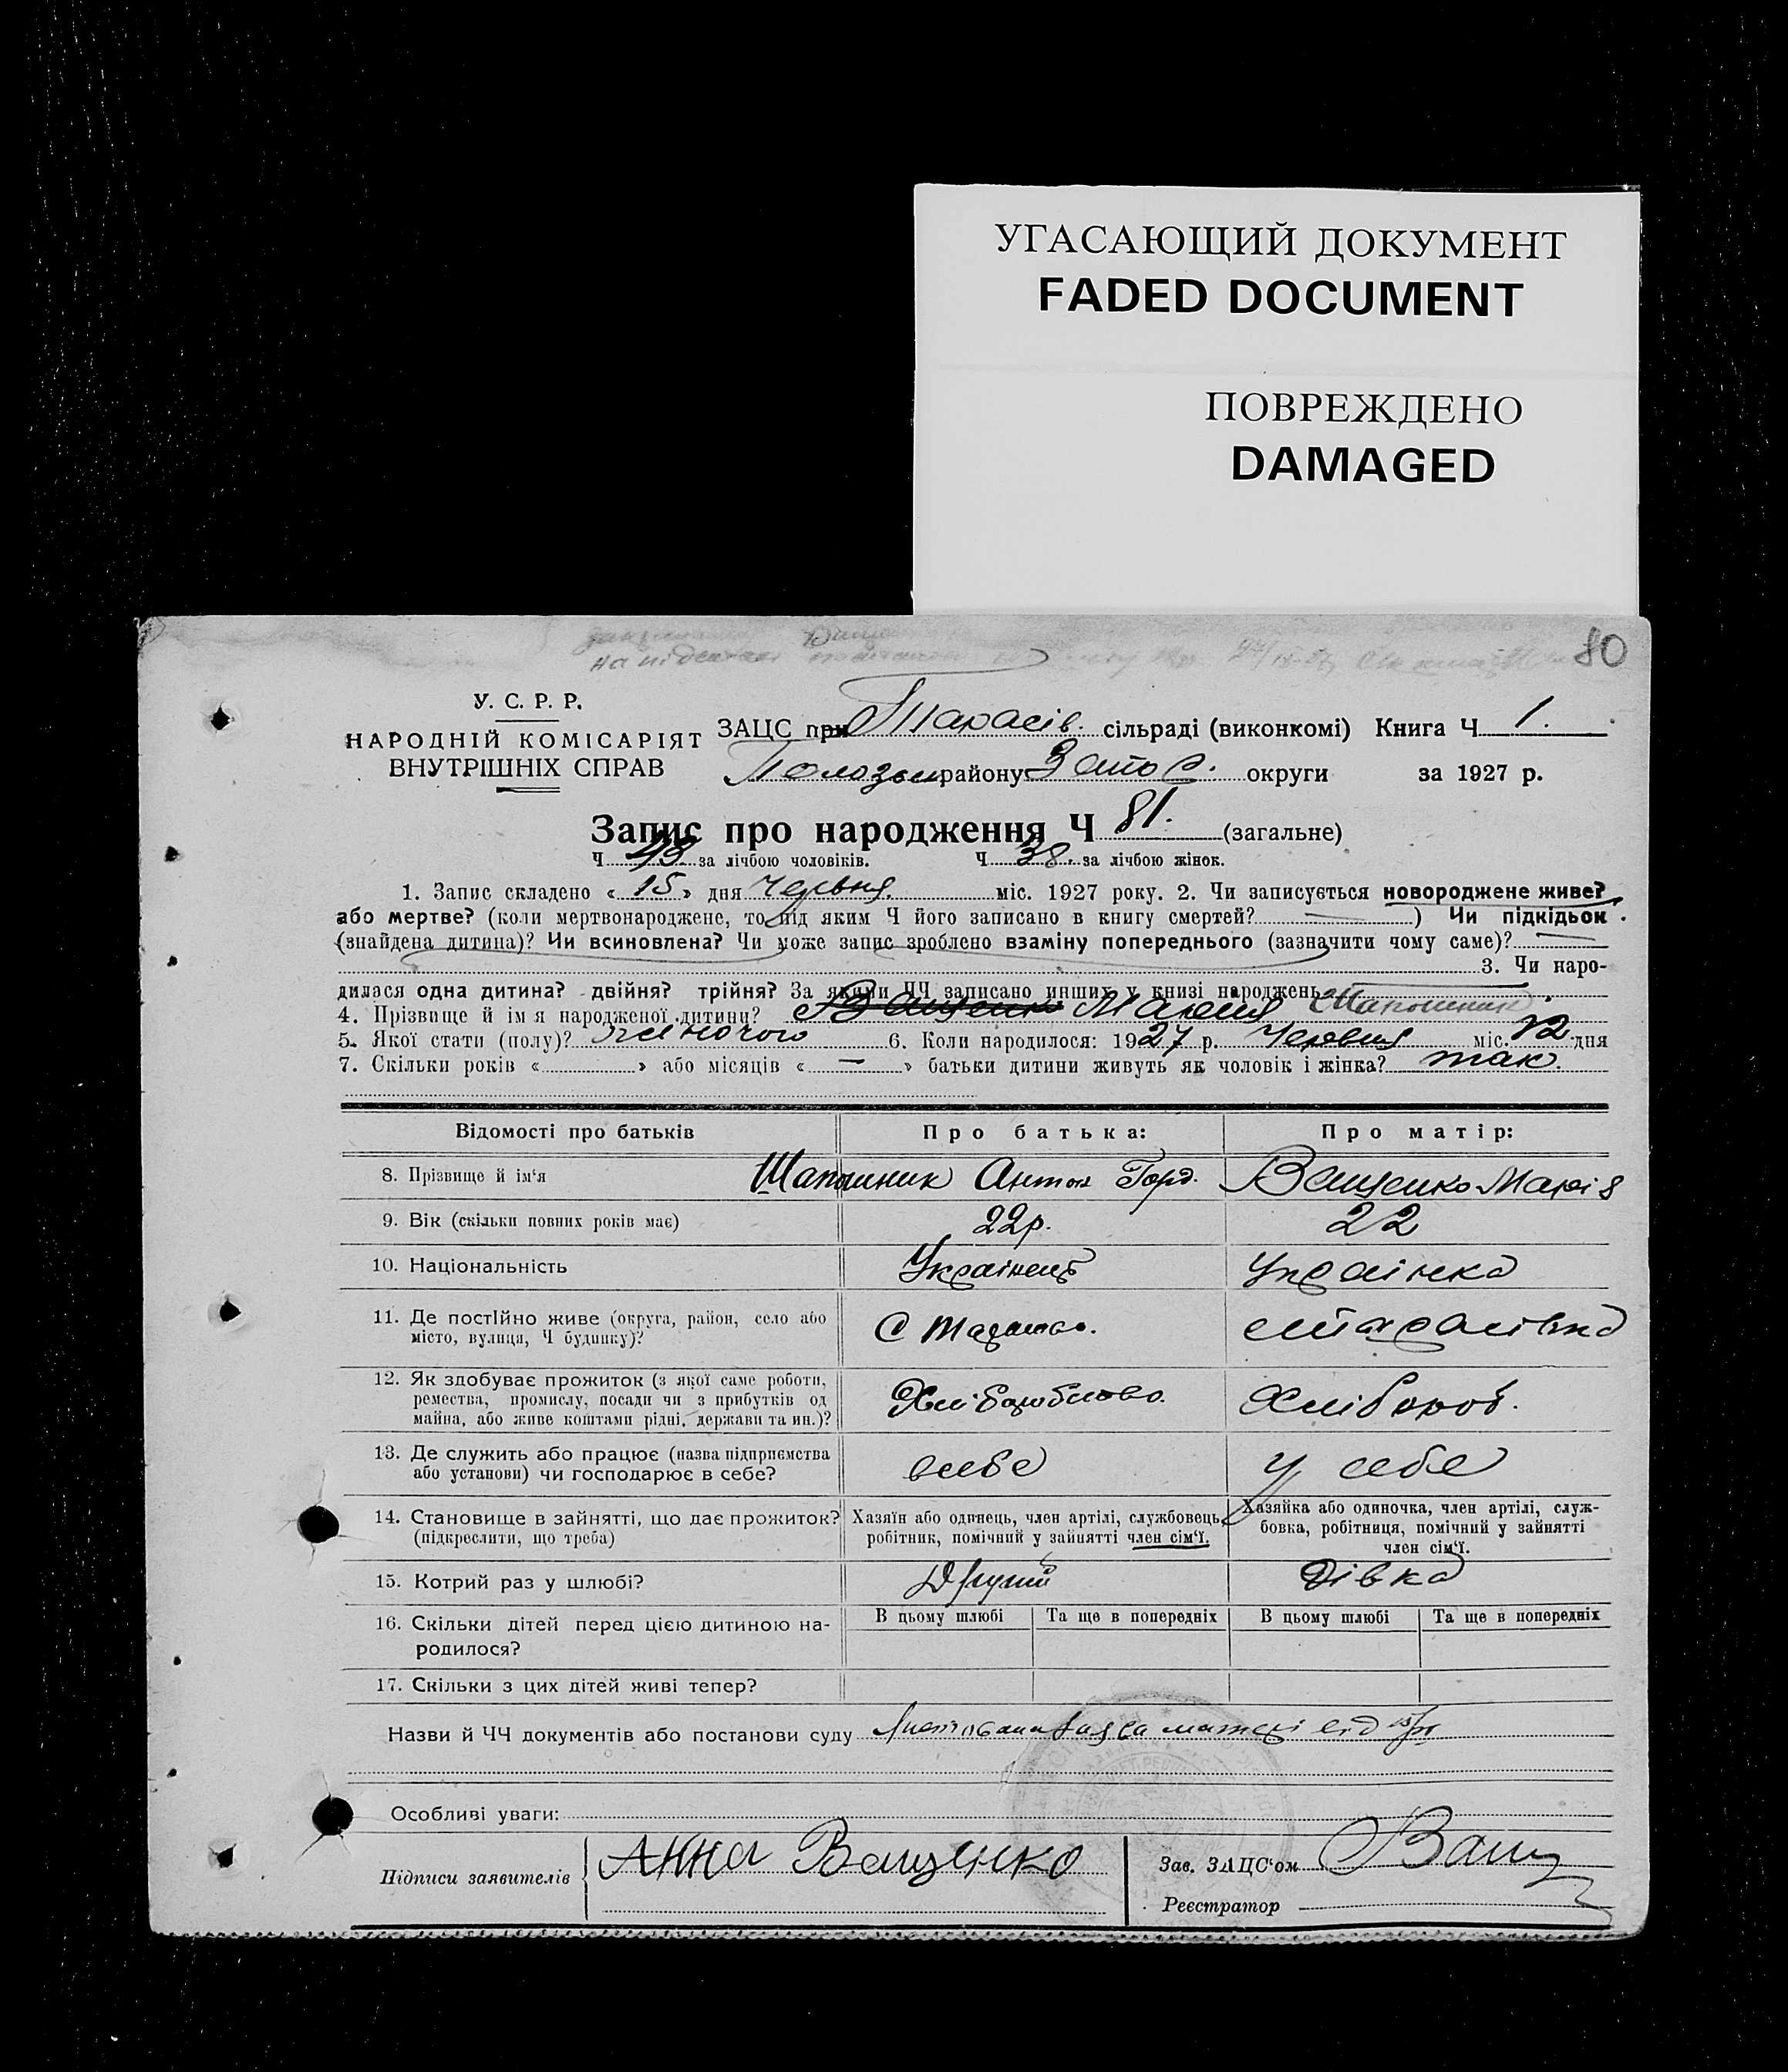 УГАСАЮЩИЙ ДОКУМЕНТ
FADED DOCUMENT
ПОВРЕЖДЕНО
DAMAGED
80
на підставі
У. С. Р. Р.
НАРОДНІЙ КОМІСАРІЯТ
ВНУТРІШНІХ СПРАВ
ЗАЦС при Тарасів. сільраді (виконкомі) Книга Ч 1.
району Запор. округи за 1927 р.
Запис про народження Ч 81. (загальне)
Ч 43 за лічбою чоловіків. Ч 38. за лічбою жінок.
1. Запис складено « 15 » дня Червня. міс. 1927 року. 2. Чи записується новороджене живе?
або мертве? (коли мертвонароджене, то під яким Ч його записано в книгу смертей? — ) Чи підкідьок
(знайдена дитина)? Чи всиновлена? Чи може запис зроблено взаміну попереднього (зазначити чому саме)? —
3. Чи наро-
дилася одна дитина? двійня? трійня? За якими ЧЧ записано инших у книзі народжень
4. Прізвище й ім'я народженої дитини? Ващенко Мария Шапошник
5. Якої стати (полу)? жиночого 6. Коли народилося: 1927 р. Червня міс. 12 дня
7. Скільки років « » або місяців « — » батьки дитини живуть як чоловік і жінка? так.
Відомості про батьків
Про батька:
Про матір:
8. Прізвище й ім'я
Шапошник Антон Горд.
Ващенко Марія
9. Вік (скільки повних років має)
22р.
22
10. Національність
Українець
Українка
11. Де постійно живе (округа, район, село або
місто, вулиця, Ч будинку)?
С
12. Як здобуває прожиток (з якої саме роботи,
ремества, промислу, посади чи з прибутків од
майна, або живе коштами рідні, держави та ин.)?
Хліборобство.
Хлібороб.
13. Де служить або працює (назва підприємства
або установи) чи господарює в себе?
всебе
у себе
14. Становище в зайнятті, що дає прожиток?
(підкреслити, що треба)
Хазяїн або одинець, член артілі, службовець,
робітник, помічний у зайнятті член сім'ї.
Хазяйка або одиночка, член артілі, служ-
бовка, робітниця, помічний у зайнятті
член сім'ї.
15. Котрий раз у шлюбі?
Другий
Дівка
16. Скільки дітей перед цією дитиною на-
родилося?
В цьому шлюбі
Та ще в попередніх
В цьому шлюбі
Та ще в попередніх
17. Скільки з цих дітей живі тепер?
Назви й ЧЧ документів або постанови суду матері від
Особливі уваги:
Підписи заявителів
Анна Ващенко
Зав. ЗАЦС'ом Ващ
Реєстратор